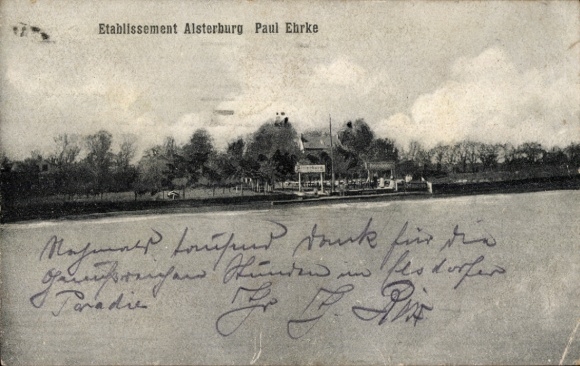 Etablissement Alsterburg Paul Ehrke
Nochmals tausend Dank für die
genußreichen Stunden im
Paradies
Ihr J. Rix